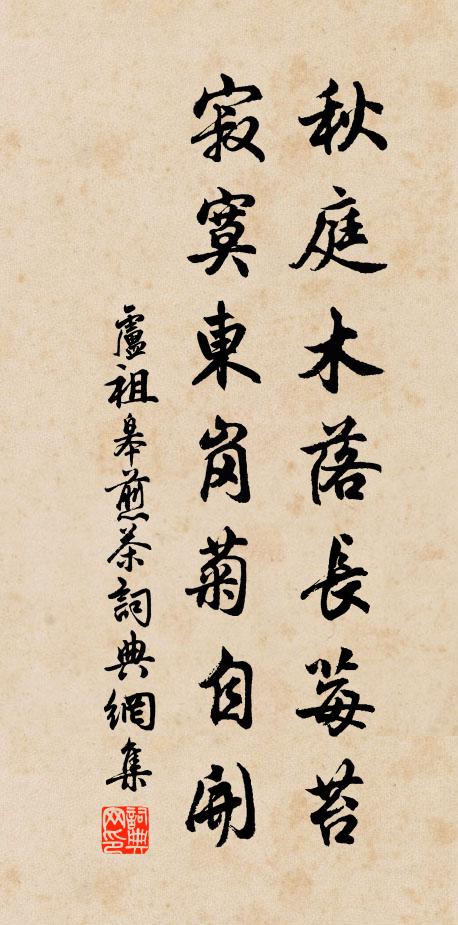 秋庭木落長莓苔
寂寞東崗菊自開
盧祖皋煎茶詞典網集
詞典网印